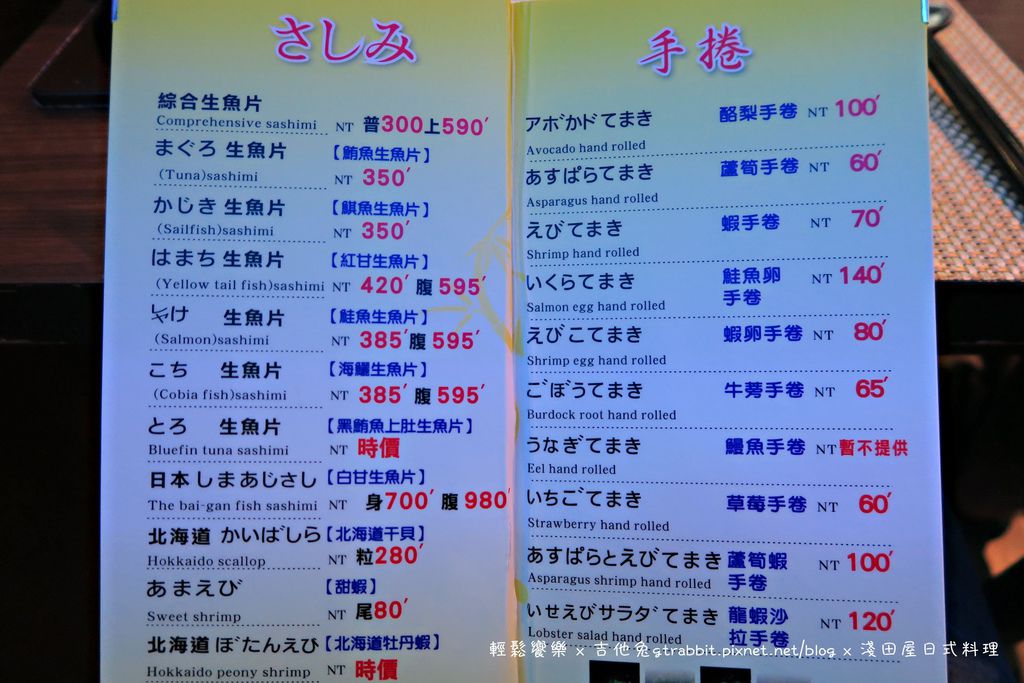 さしみ
綜合生魚片
Comprehensive sashimi NT 普300上590'
まぐろ 生魚片 【鮪魚生魚片】
(Tuna)sashimi NT 350'
かじき 生魚片 【旗魚生魚片】
(Sailfish)sashimi NT 350'
はまち 生魚片 【紅甘生魚片】
(Yellow tail fish)sashimi NT 420' 腹 595'
しゃけ 生魚片 【鮭魚生魚片】
(Salmon)sashimi NT 385'腹 595'
こち 生魚片 【海鱺生魚片】
(Cobia fish)sashimi NT 385' 腹 595'
とろ 生魚片 【黑鮪魚上肚生魚片】
Bluefin tuna sashimi NT 時價
日本 しまあじさし 【白甘生魚片】
The bai-gan fish sashimi NT 身700' 腹 980'
北海道 かいばしら 【北海道干貝】
Hokkaido scallop NT 粒280'
あまえび 【甜蝦】
Sweet shrimp NT 尾80'
北海道 ぼたんえび 【北海道牡丹蝦】
Hokkaido peony shrimp NT 時價
手捲
アボかドてまき 酪梨手卷 NT 100'
Avocado hand rolled
あすぱらてまき 蘆筍手卷 NT 60'
Asparagus hand rolled
えびてまき 蝦手卷 NT 70'
Shrimp hand rolled
いくらてまき 鮭魚卵 NT 140'
手卷
Salmon egg hand rolled
えびこてまき 蝦卵手卷 NT 80'
Shrimp egg hand rolled
ごぼうてまき 牛蒡手卷 NT 65'
Burdock root hand rolled
うなぎてまき 鰻魚手卷 NT暫不提供
Eel hand rolled
いちごてまき 草莓手卷 NT 60'
Strawberry hand rolled
あすぱらとえびてまき 蘆筍蝦 NT 100'
手卷
Asparagus shrimp hand rolled
いせえびサラダてまき 龍蝦沙 NT 120'
拉手卷
Lobster salad hand rolled
輕鬆饗樂 x 吉他兔gtrabbit.pixnet.net/blog x 淺田屋日式料理